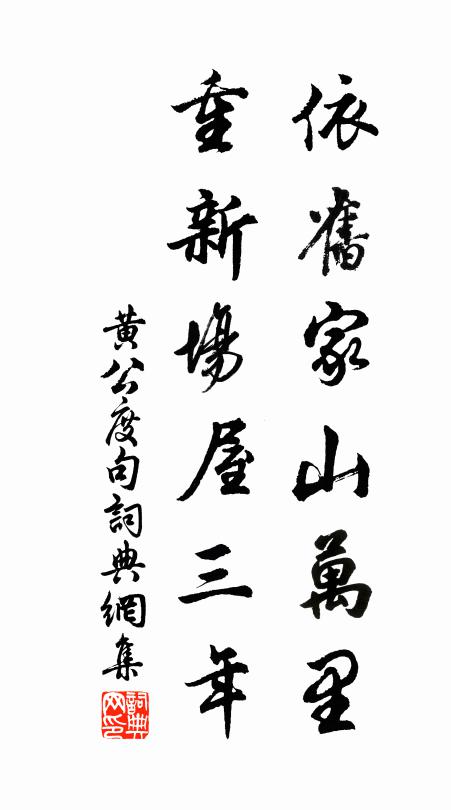 依舊家山萬里
重新場屋三年
黄公度句詞典網集
詞典网印